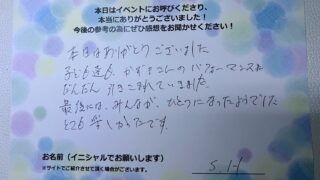 本日はイベントにお呼びくださり、
本当にありがとうございました！
今後の参考の為にぜひ感想をお聞かせください！
本日はありがとうございました
子ども達も、かずきさんのパフォーマンスに
だんだん 引きこまれていきました。
最後には、みんなが、ひとつになったようでした
とても楽しかったです。
お名前（イニシャルでお願いします）
※サイトでご紹介させて頂く場合がございます。
S.H